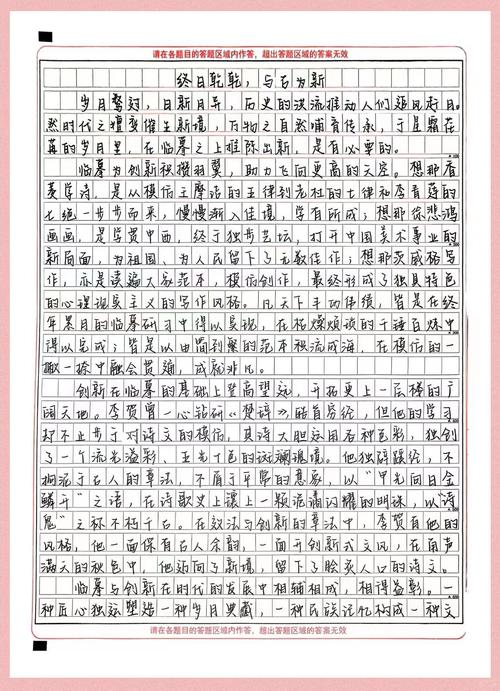 请在各题目的答题区域内作答，超出答题区域的答案无效
终日乾乾，与古为新
岁月骛过，日新月异，历史的洪流推动人们追风赶月。
然时代之嬗变催生新境，万物之自然哺育传承，于是霜在
苒的岁月里，在临摹之上推陈出新，是有必要的。
临摹为创新积攒羽翼，助力飞向更高的天空。想那香
菱学诗，是从模仿王摩诘的五律到老杜的七律和李青莲的
七绝一步步而来，慢慢渐入佳境，学有所成；想那徐悲鸿
画画，是学贯中西，终于独步艺坛，打开中国美术事业的
新局面，为祖国、为人民留下了无数佳作；想那茨威格写
作，亦是读遍大家范本，模仿创作，最终形成了独具特色
的心理现实主义的写作风格。凡天下丰功伟绩，皆是在经
年累月的临摹研习中得以实现，在枯燥烦琐的千锤百炼中
得以完成；皆是以由简到繁的范本积流成海，在模仿的一
撇一捺中融会贯通，成就非凡。
创新在临摹的基础上登高望远，开拓更上一层楼的广
阔天地。李贺曾一心钻研《楚辞》，皓首穷经，但他的学习
却不止步于对诗文的模仿，其诗大胆运用各种色彩，独创
了一个流光溢彩、五光十色的斑斓境境。他独辟蹊径，不
拘泥于古人的章法，不屑于平常的意象，以“甲光向日金
鳞开”之语，在诗歌史上镶上一颗诡谲闪耀的明珠，以“诗
鬼”之称不朽于古。在效法与创新的章法中，李贺有他的
风格，他一面保有古人余韵，一面开创新式文风，在角声
满天的秋色中，他迈向了新境，留下了脍炙人口的诗文。
临摹与创新在时代的发展中相辅相成，相得益彰。一
种匠心独运塑造一种岁月典藏，一种民族记忆构成一种文
请在各题目的答题区域内作答，超出答题区域的答案无效